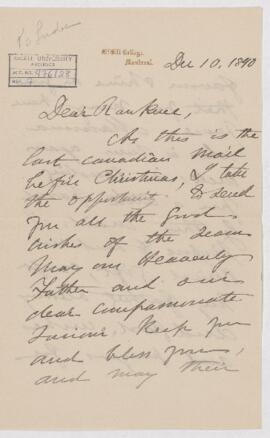 McGill College,
Montreal.
Dec 10, 1890
McGILL UNIVERSITY
ARCHIVES
ACC. NO.
Dear Rankine,
As this is the
last Canadian mail
before Christmas, I take
the opportunity to send
you all the good
wishes of the season
May our Heavenly
Father and our
dear compassionate
Saviour keep you
and bless you,
and may their